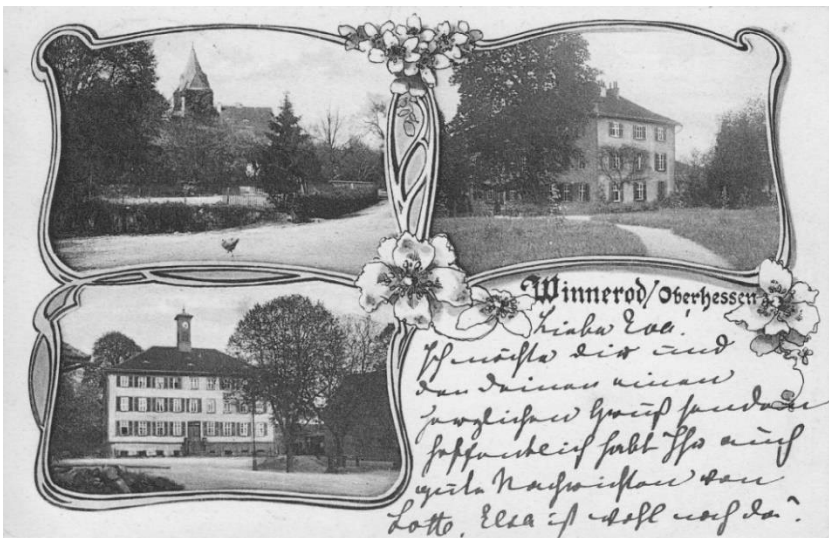 Winnerod/Oberhessen
Liebe Eva!
Ich möchte dir und
den deinen einen
herzlichen Gruß senden
hoffentlich habt Ihr auch
gute Nachrichten von
Lotte, Elsa ist wohl noch da?